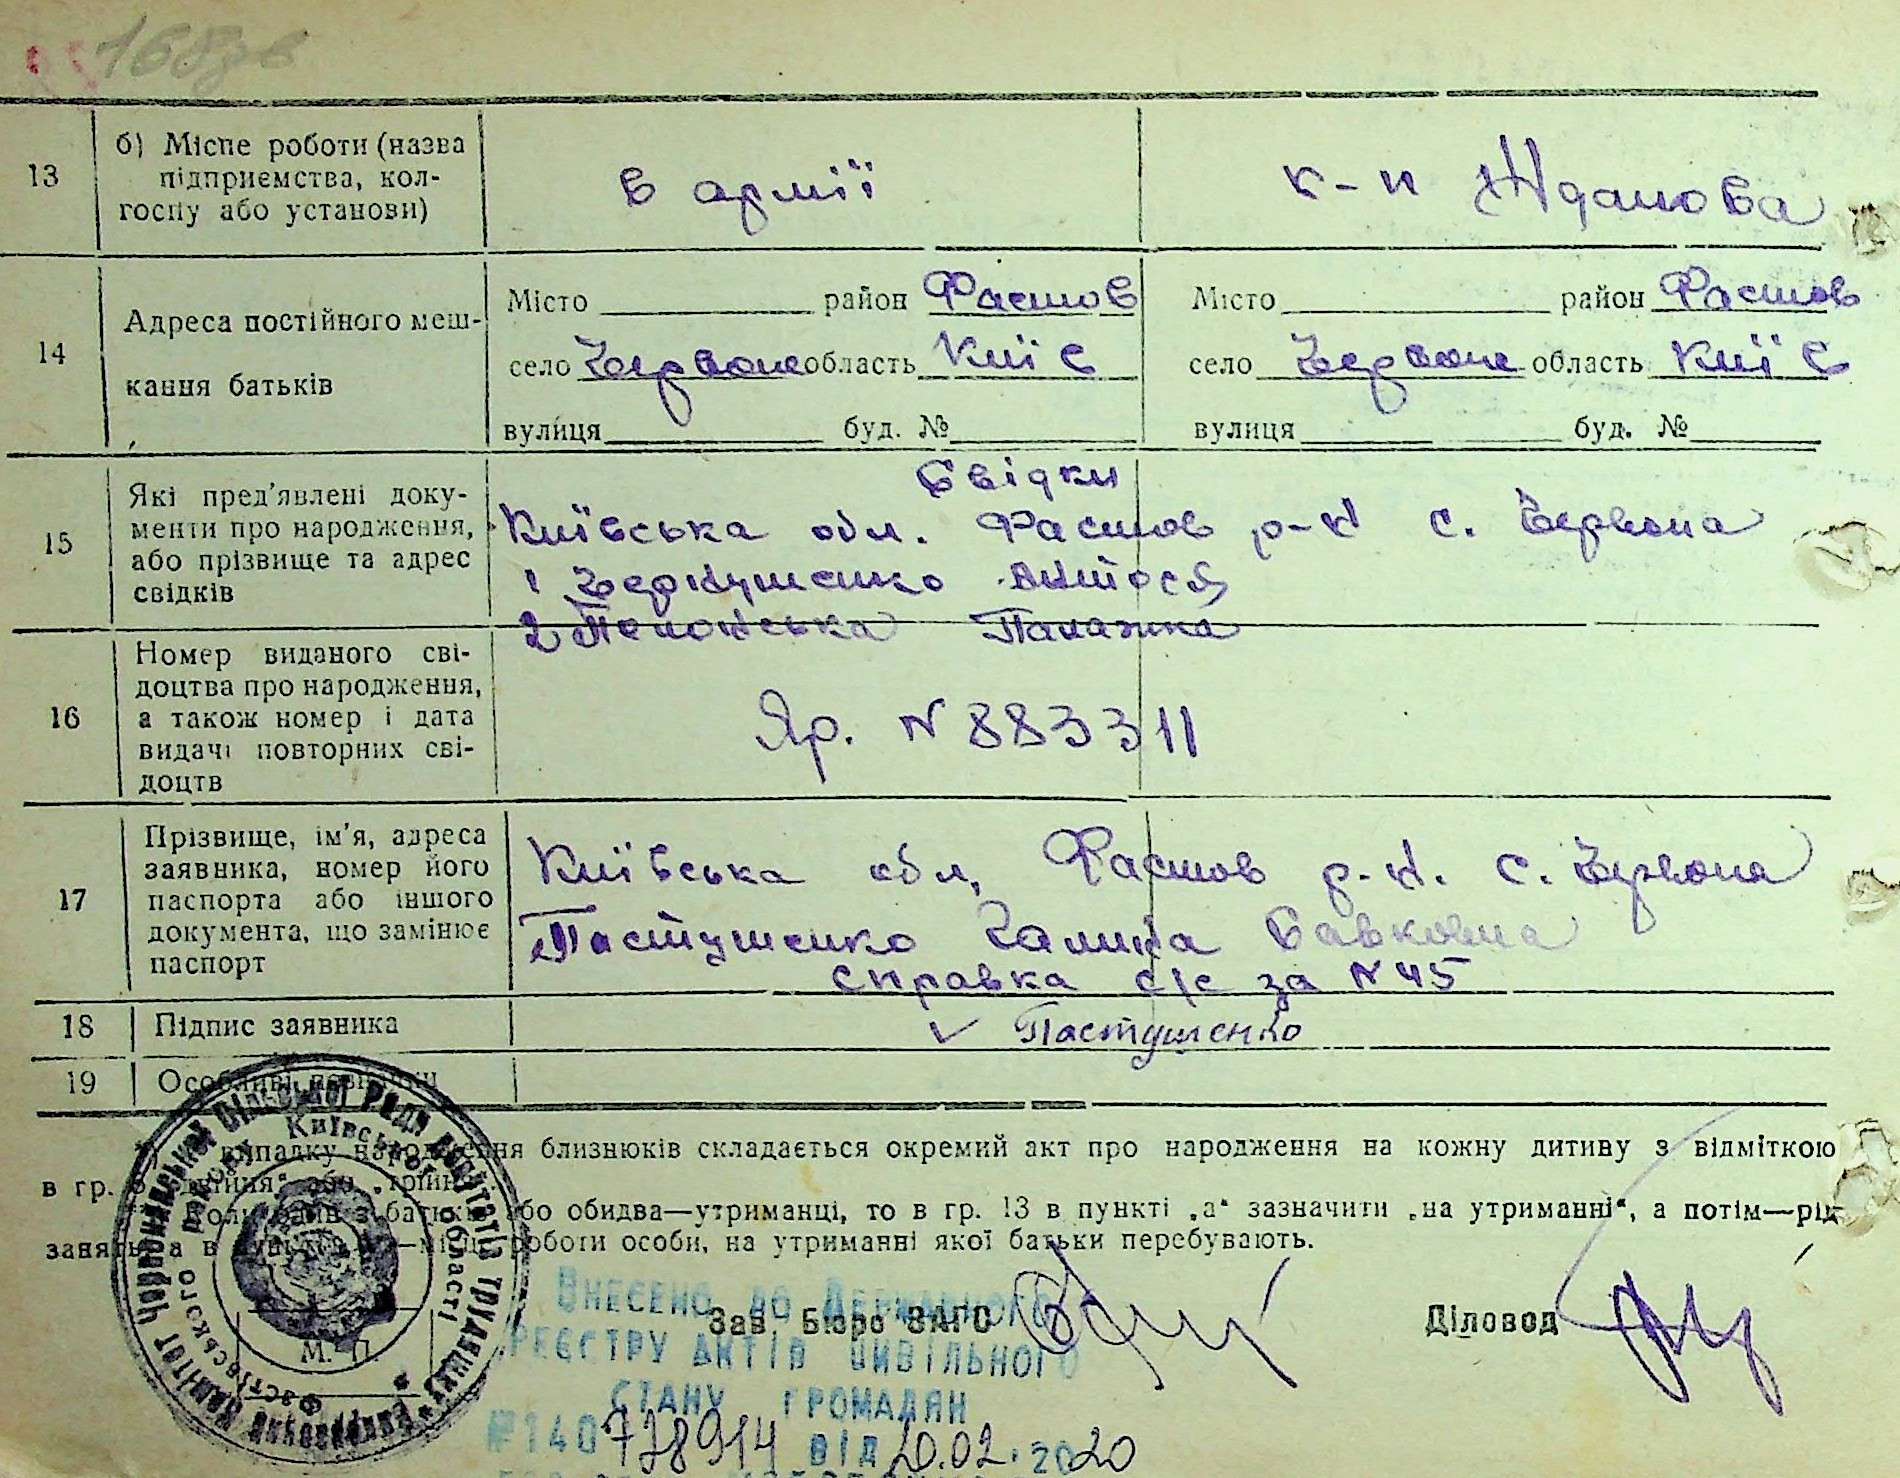 13
б) Місце роботи (назва
підприємства, кол-
госпу або установи)
в армії
к-п Жданова
14
Адреса постійного меш-
кання батьків
Місто район Фастов
село Червоне область Київ
вулиця буд. №
Місто район Фастов
село Червоне область Київ
вулиця буд. №
15
Які пред'явлені доку-
менти про народження,
або прізвище та адрес
свідків
Свідки
Київська обл. Фастов р-н с. Червона
1
2 Палажка
16
Номер виданого сві-
доцтва про народження,
а також номер і дата
видачі повторних сві-
доцтв
Яр. N 883311
17
Прізвище, ім'я, адреса
заявника, номер його
паспорта або іншого
документа, що замінює
паспорт
Київська обл, Фастов р-н. с. Червона
Пастушенко Галина Савковна
справка с/с за N 45
18
Підпис заявника
Пастушенко
19
Особливі
випадку народження близнюків складається окремий акт про народження на кожну дитину з відміткою
в гр. або
батьків або обидва—утриманці, то в гр. 13 в пункті „а“ зазначити „на утриманні“, а потім—рід
роботи особи, на утриманні якої батьки перебувають.
Зав. Бюро ЗАГС
Діловод
М. П.
Виконавчий Комітет Сільської Ради Депутатів Трудящих
Фастівського району Київської області
Внесено до Державного
реєстру актів цивільного
стану громадян
№140 738914 від 20.02.2020